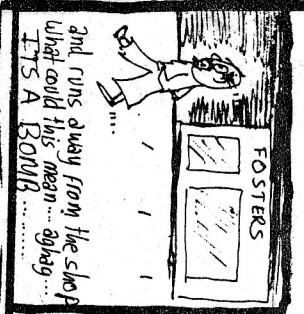 FOSTERS
and runs away from the shop
What could this mean.... aghag....
ITS A BOMB..........